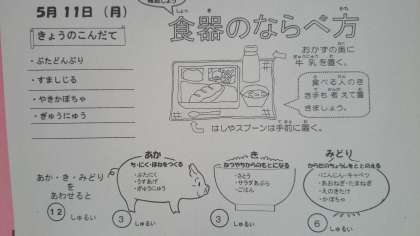 5月 11日 (月)
しょう
きょうのこんだて
・ぶたどんぶり
・すましじる
・やきかぼちゃ
・ぎゅうにゅう
食器のならべ方
しょっ き かた
おかずの奥に
牛乳を置く。
食べる人のき
き手も考えて置
きましょう。
はしやスプーンは手前に置く。
あか・き・みどり
を
あわせると
12 しゅるい
あか
ち・にく・ほねをつくる
・ぶたにく
・うすあげ
・ぎゅうにゅう
3 しゅるい
き
ねつやちからのもとになる
・さとう
・サラダあぶら
・ごはん
3 しゅるい
みどり
からだのちょうしをととのえる
・にんじん・キャベツ
・あおねぎ・たまねぎ
・えのきたけ
・かぼちゃ
6 しゅるい